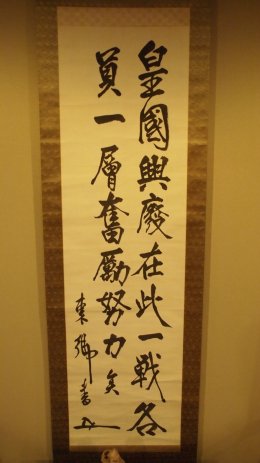 皇國興廢在此一戰各
員一層奮勵努力矣
東郷書